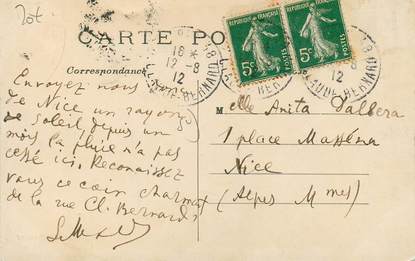 CARTE PO
Correspondance
16
12-8
12
BERNARD
8
12
RÉPUBLIQUE FRANÇAISE
5c
POSTES
RÉPUBLIQUE FRANÇAISE
5c
POSTES
Envoyez nous
de Nice un rayon
de soleil, depuis un
mois la pluie n'a pas
cessé ici. Reconaissez
vous ce coin charmant
de la rue Cl. Bernard
Melle Anita Dalbera
1 place Masséna
Nice
(Alpes Mmes)